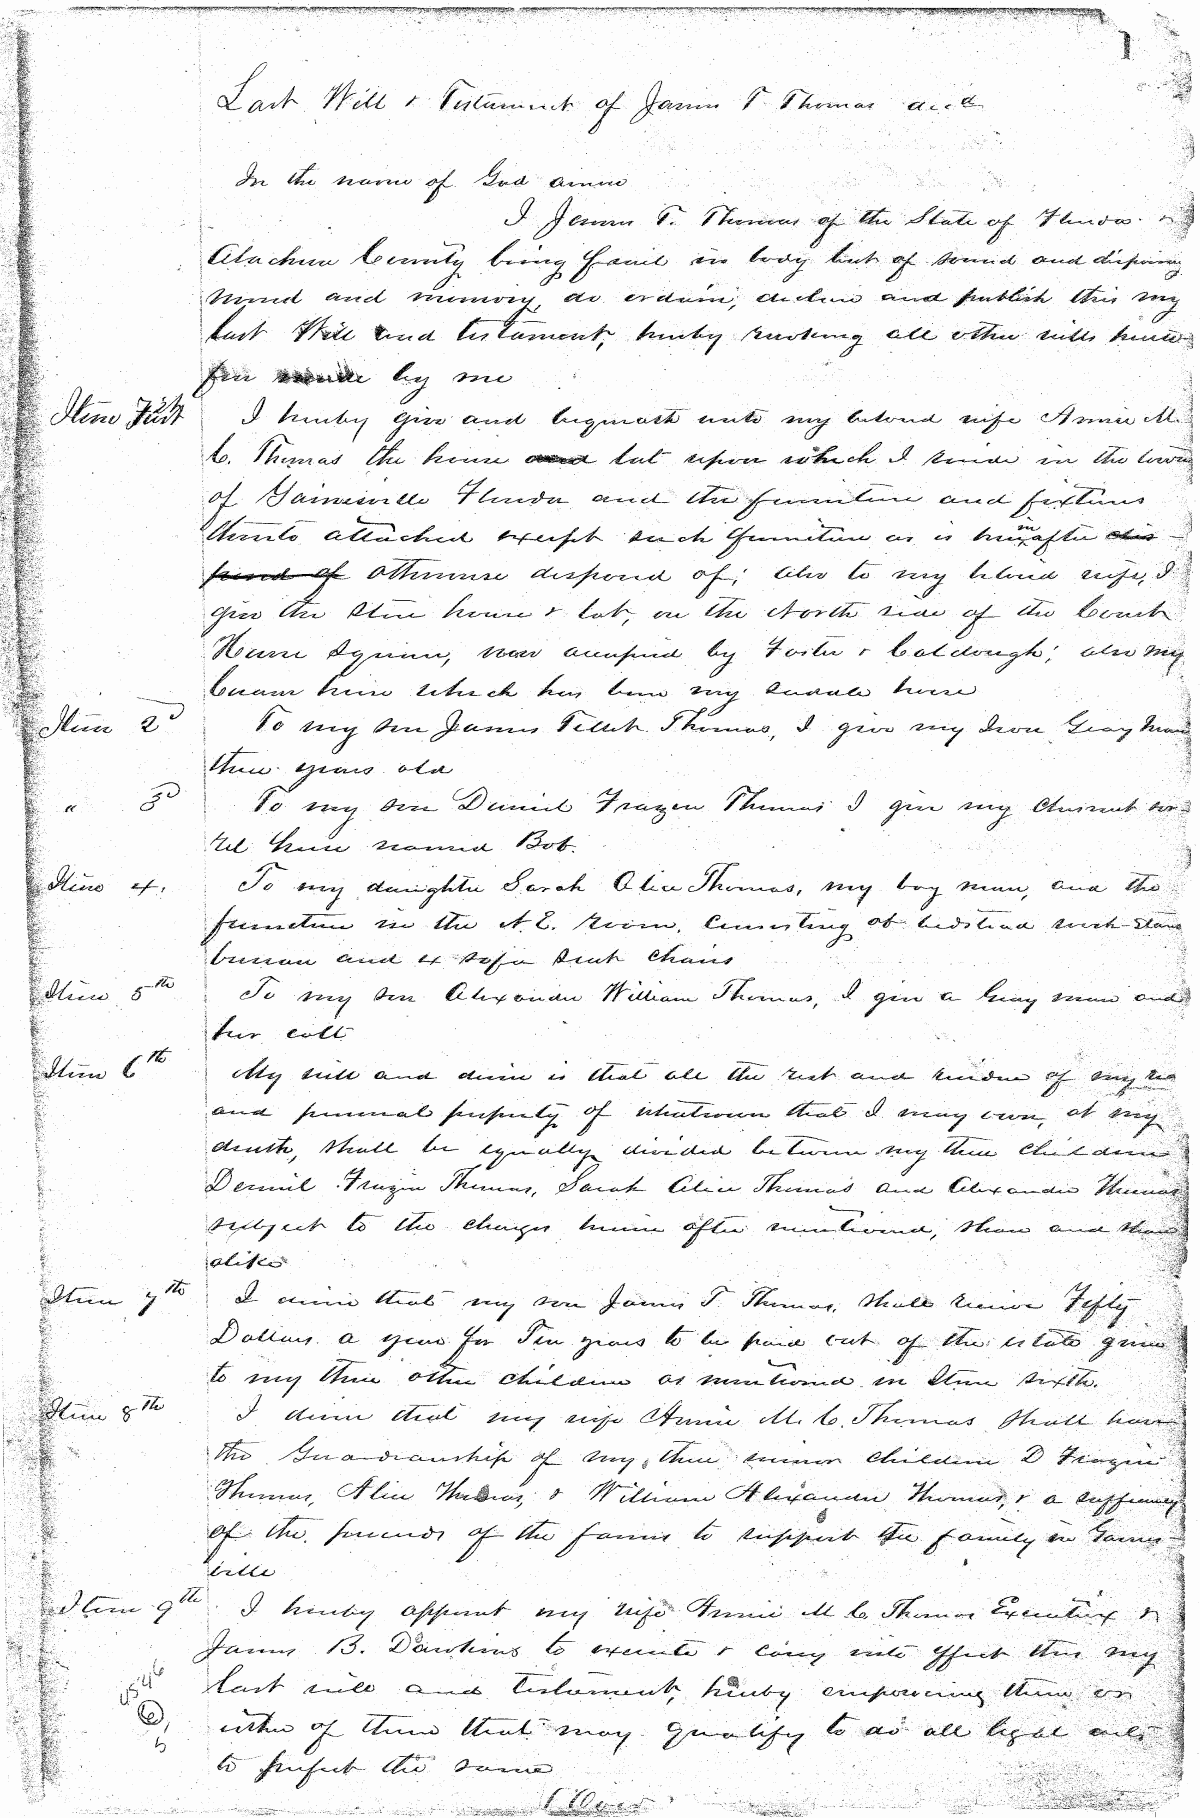 1
Last Will & Testament of James T. Thomas decd
In the name of God amen
I James T. Thomas of the State of Florida &
Alachua County being frail in body but of sound and disposing
mind and memory, do ordain, declare and publish this my
last Will and testament, hereby revoking all other wills hereto
fore made by me
Item First I hereby give and bequeath unto my beloved wife Annie M.
C. Thomas the house and lot upon which I reside in the town
of Gainesville Florida and the furniture and fixtures
thereto attached except such furniture as is hereinafter dis
posed of otherwise disposed of; also to my beloved wife, I
give the Store house & lot, on the North side of the Court
House Square, now occupied by Foster & Colclough; also my
horse which has been my saddle horse
Item 2d To my son James Tillet Thomas, I give my Iron Gray Mare
three years old
" 3d To my son Daniel Frazer Thomas I give my Chesnut sor
rel horse named Bob.
Item 4. To my daughter Sarah Alice Thomas, my bay mare, and the
furniture in the N. E. room, Consisting of bedstead wash-stand
bureau and 4 sofa seat chairs
Item 5th To my son Alexander William Thomas, I give a Gray mare and
her colt
Item 6th My will and desire is that all the rest and residue of my real
and personal property of whatsoever that I may own, at my
death, shall be equally divided between my three children
Daniel Frazer Thomas, Sarah Alice Thomas and Alexander Thomas
subject to the charges herein after mentioned, share and share
alike
Item 7th I desire that my son James T. Thomas, shall receive Fifty
Dollars a year for Ten years to be paid out of the estate given
to my three other children as mentioned in Item sixth.
Item 8th I desire that my wife Annie M. C. Thomas shall have
the Guardianship of my three minor children D Frazer
Thomas, Alice Thomas, & William Alexander Thomas, & a sufficiency
of the proceeds of the farms to support the family in Gaines
ville
Item 9th I hereby appoint my wife Annie M C Thomas Executrix &
James B. Dawkins to execute & carry into effect this my
last will and testament, hereby empowering them or
either of them that may qualify to do all legal acts
to perfect the same
(Over